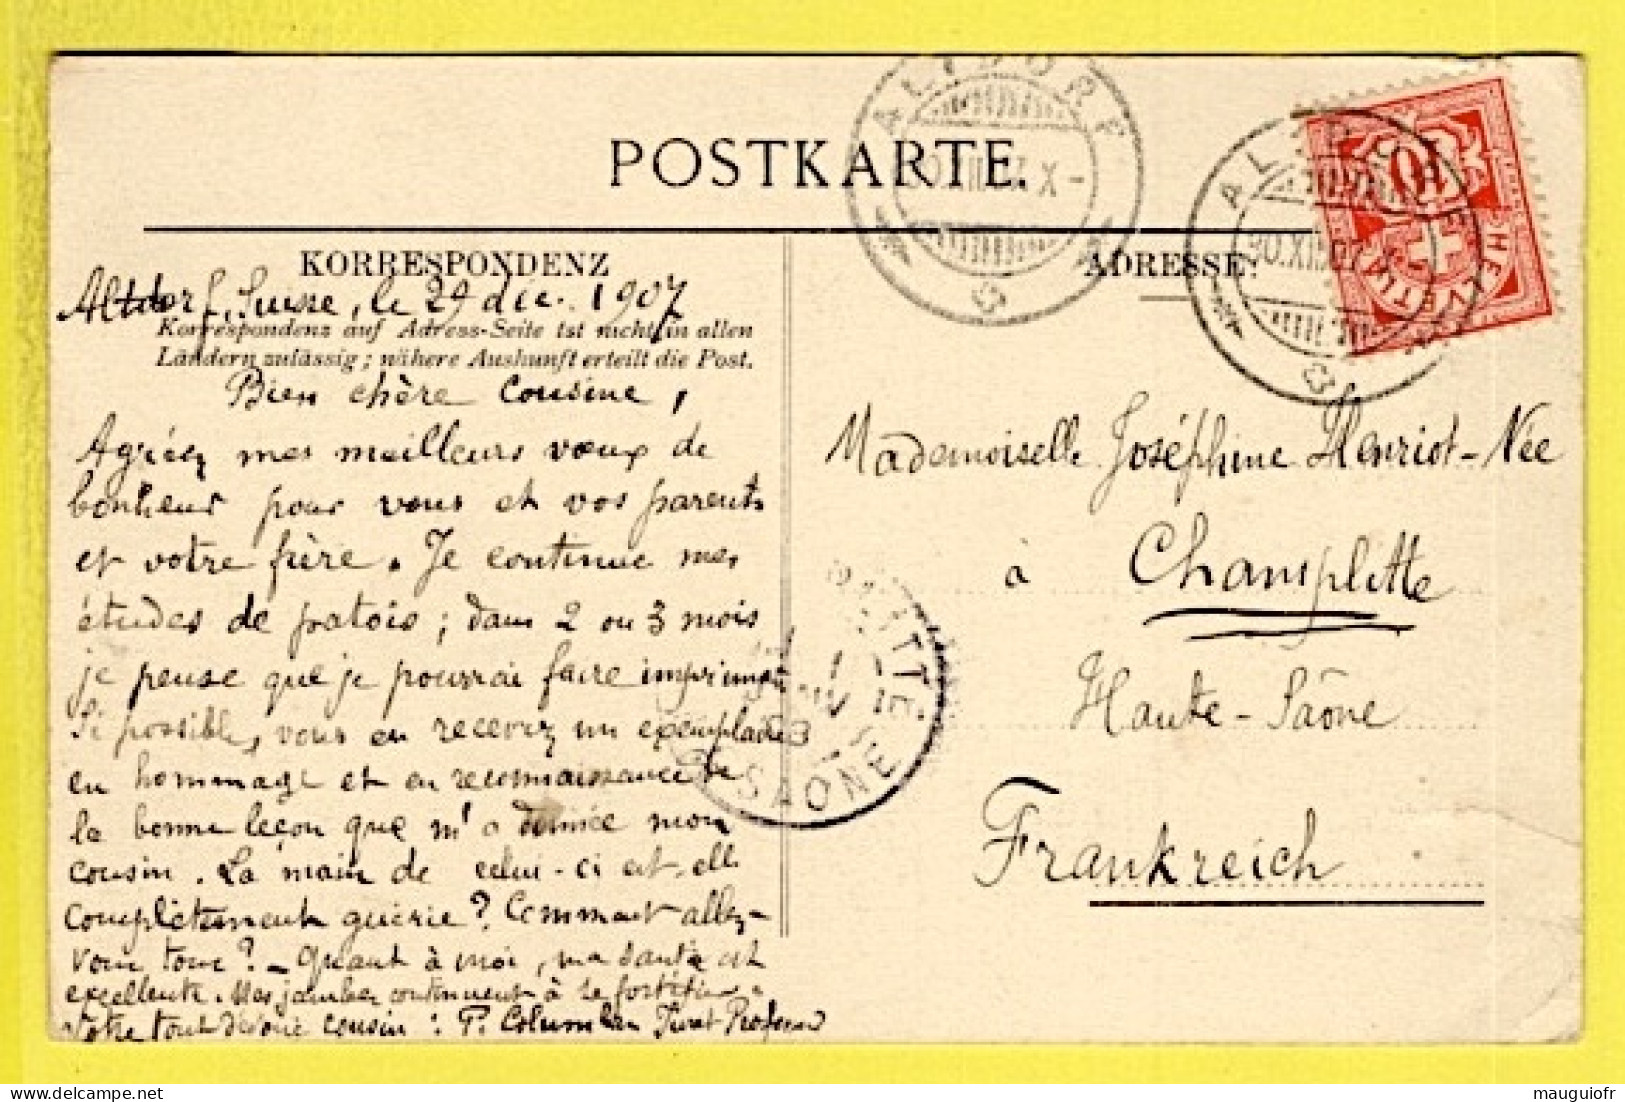 POSTKARTE.
KORRESPONDENZ
Altdorf, Suisse, le 29 déc. 1907
Korrespondenz auf Adress-Seite ist nicht in allen
Ländern zulässig; nähere Auskunft erteilt die Post.
Bien chère Cousine,
Agréez mes meilleurs vœux de
bonheur pour vous et vos parents
et votre frère. Je continue mes
études de patois; dans 2 ou 3 mois
je pense que je pourrai faire imprimer
Si possible, vous en recevrez un exemplaire
en hommage et en reconnaissance de
la bonne leçon que m'a donnée mon
cousin. La main de celui-ci est-elle
complètement guérie? Comment allez-
vous tous? - Quant à moi, ma santé est
excellente. Mes jambes continuent à se fortifier.
Votre tout dévoué cousin: P. Columban Professeur
ADRESSE:
Mademoiselle Joséphine Henriot-Née
à Champlitte
Haute-Saône
Frankreich
ALTDORF
ALTDORF
30.XII.07
10
HELVETIA
SAONE
mauguiofr